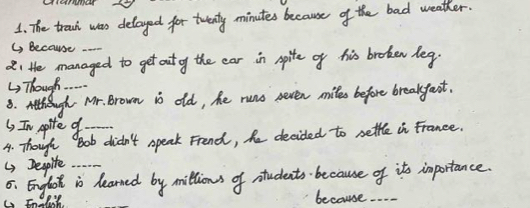 Grammar
1. The train was delayed for twenty minutes because of the bad weather.
↳ Because ----
2. He managed to get out of the car in spite of his broken leg.
↳ Though -----
3. Although Mr. Brown is old, he runs seven miles before breakfast.
↳ In spite of ------
4. Though Bob didn't speak French, he decided to settle in France.
↳ Despite ------
5. English is learned by millions of students because of its importance.
↳ English because ----